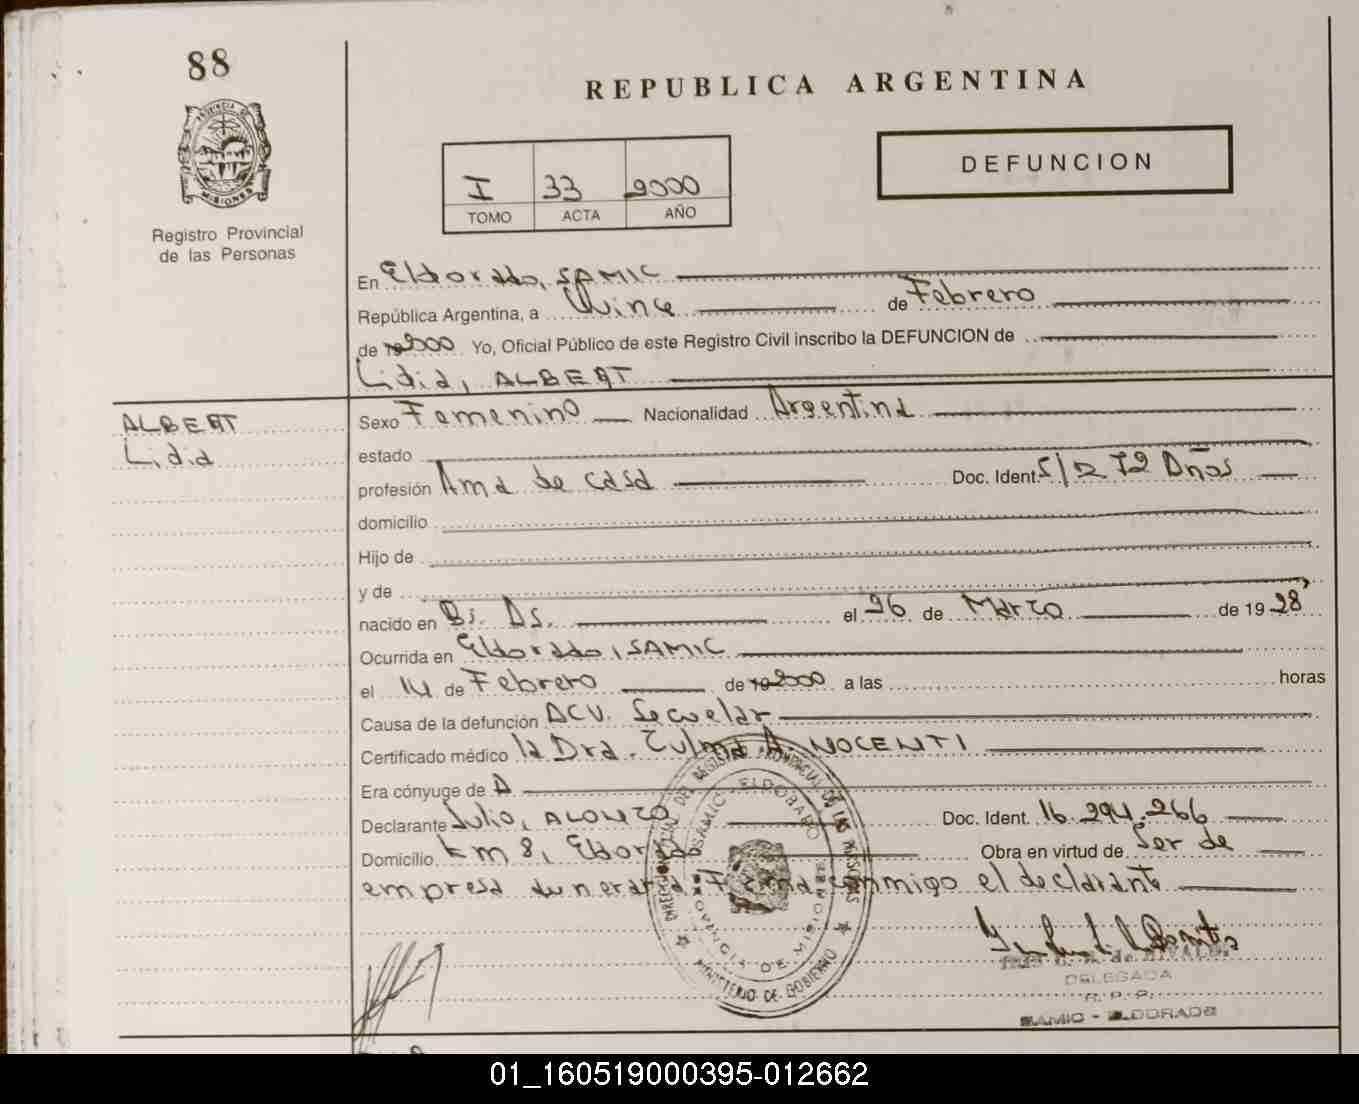 88
REPUBLICA ARGENTINA
PROVINCIA DE
MISIONES
Registro Provincial
de las Personas
I 33 2000
TOMO ACTA AÑO
DEFUNCION
En Eldorado, SAMIC
República Argentina, a Quince de Febrero
de 2000 Yo, Oficial Público de este Registro Civil inscribo la DEFUNCION de
Lidia, ALBERT
ALBERT
Lidia
Sexo Femenino Nacionalidad Argentina
estado
profesión Ama de casa Doc. Ident. 72 Años
domicilio
Hijo de
y de
nacido en Bs. As. el 26 de Marzo de 1928
Ocurrida en Eldorado, SAMIC
el 14 de Febrero de 2000 a las horas
Causa de la defunción ACV. Secuelar
Certificado médico la Dra. A. NOCENTI
Era cónyuge de A
Declarante Julio, ALONZO Doc. Ident. 16.294.266
Domicilio km 8, Eldorado Obra en virtud de Ser de
empresa funeraria Firma conmigo el declarante
DIRECCION GENERAL DEL REGISTRO PROVINCIAL DE LAS PERSONAS
MINISTERIO DE GOBIERNO
SAMIC ELDORADO
PROVINCIA DE MISIONES
DELEGADA
R. P. P.
SAMIC - ELDORADO
01_160519000395-012662